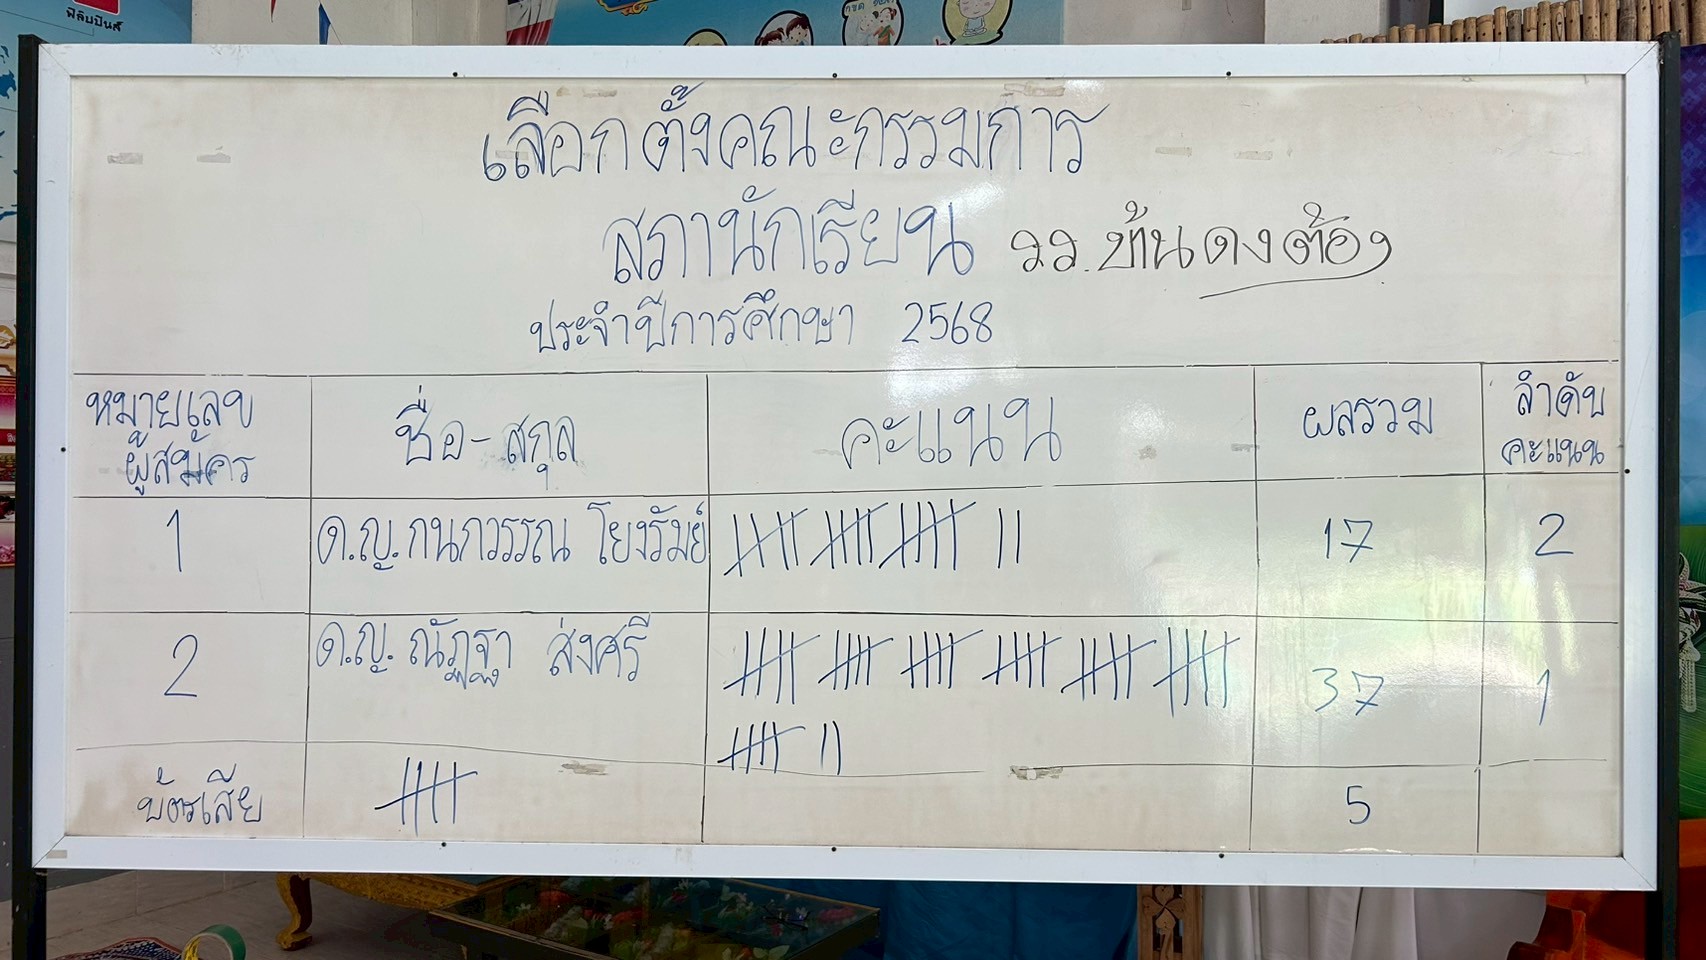 ฟิลิปปินส์
เลือกตั้งคณะกรรมการ
สภานักเรียน รร.บ้านดงต้อง
ประจำปีการศึกษา 2568
หมายเลขผู้สมัคร ชื่อ-สกุล คะแนน ผลรวม ลำดับคะแนน
1 ด.ญ.กนกวรรณ โยงรัมย์ 17 2
2 ด.ญ.ณัฏฐา ส่งศรี 37 1
บัตรเสีย 5